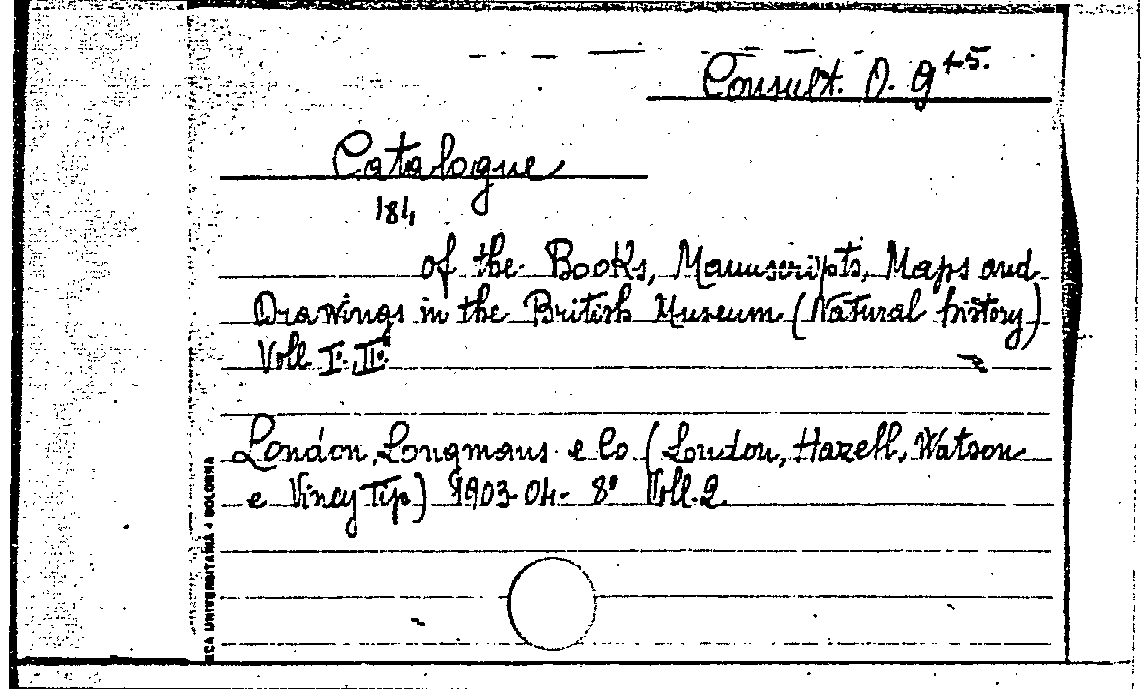 Consult. O. 9 45.
Catalogue
184
of the Books, Manuscripts, Maps and
Drawings in the British Museum (Natural history)
Voll I. II.
London, Longmans e Co (London, Hazell, Watson
e Viney Tip.) 1903-04- 8º Voll. 2.
CA UNIVERSITARIA BOLOGNA